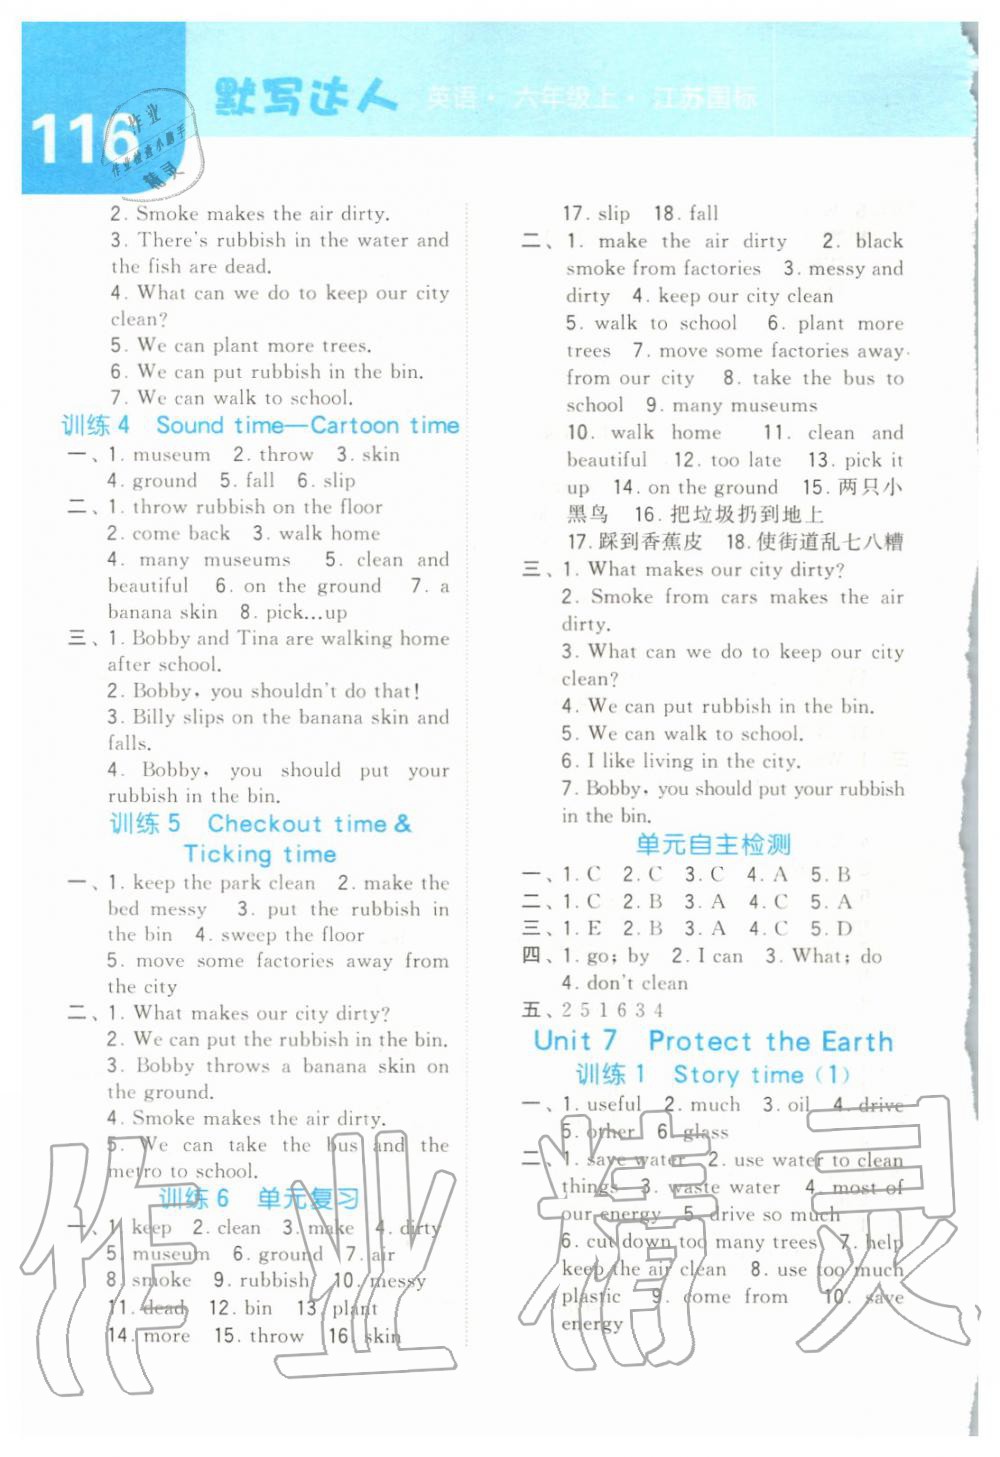 116
默写达人 英语·六年级上·江苏国标
作业
作业检查小助手
精灵
2. Smoke makes the air dirty.
3. There's rubbish in the water and
the fish are dead.
4. What can we do to keep our city
clean?
5. We can plant more trees.
6. We can put rubbish in the bin.
7. We can walk to school.
训练4 Sound time—Cartoon time
一、1. museum 2. throw 3. skin
4. ground 5. fall 6. slip
二、1. throw rubbish on the floor
2. come back 3. walk home
4. many museums 5. clean and
beautiful 6. on the ground 7. a
banana skin 8. pick...up
三、1. Bobby and Tina are walking home
after school.
2. Bobby, you shouldn't do that!
3. Billy slips on the banana skin and
falls.
4. Bobby, you should put your
rubbish in the bin.
训练5 Checkout time &
Ticking time
一、1. keep the park clean 2. make the
bed messy 3. put the rubbish in
the bin 4. sweep the floor
5. move some factories away from
the city
二、1. What makes our city dirty?
2. We can put the rubbish in the bin.
3. Bobby throws a banana skin on
the ground.
4. Smoke makes the air dirty.
5. We can take the bus and the
metro to school.
训练6 单元复习
一、1. keep 2. clean 3. make 4. dirty
5. museum 6. ground 7. air
8. smoke 9. rubbish 10. messy
11. dead 12. bin 13. plant
14. more 15. throw 16. skin
17. slip 18. fall
二、1. make the air dirty 2. black
smoke from factories 3. messy and
dirty 4. keep our city clean
5. walk to school 6. plant more
trees 7. move some factories away
from our city 8. take the bus to
school 9. many museums
10. walk home 11. clean and
beautiful 12. too late 13. pick it
up 14. on the ground 15. 两只小
黑鸟 16. 把垃圾扔到地上
17. 踩到香蕉皮 18. 使街道乱七八糟
三、1. What makes our city dirty?
2. Smoke from cars makes the air
dirty.
3. What can we do to keep our city
clean?
4. We can put rubbish in the bin.
5. We can walk to school.
6. I like living in the city.
7. Bobby, you should put your rubbish
in the bin.
单元自主检测
一、1. C 2. C 3. C 4. A 5. B
二、1. C 2. B 3. A 4. C 5. A
三、1. E 2. B 3. A 4. C 5. D
四、1. go; by 2. I can 3. What; do
4. don't clean
五、2 5 1 6 3 4
Unit 7 Protect the Earth
训练1 Story time (1)
一、1. useful 2. much 3. oil 4. drive
5. other 6. glass
二、1. save water 2. use water to clean
things 3. waste water 4. most of
our energy 5. drive so much
6. cut down too many trees 7. help
keep the air clean 8. use too much
plastic 9. come from 10. save
energy
作业精灵